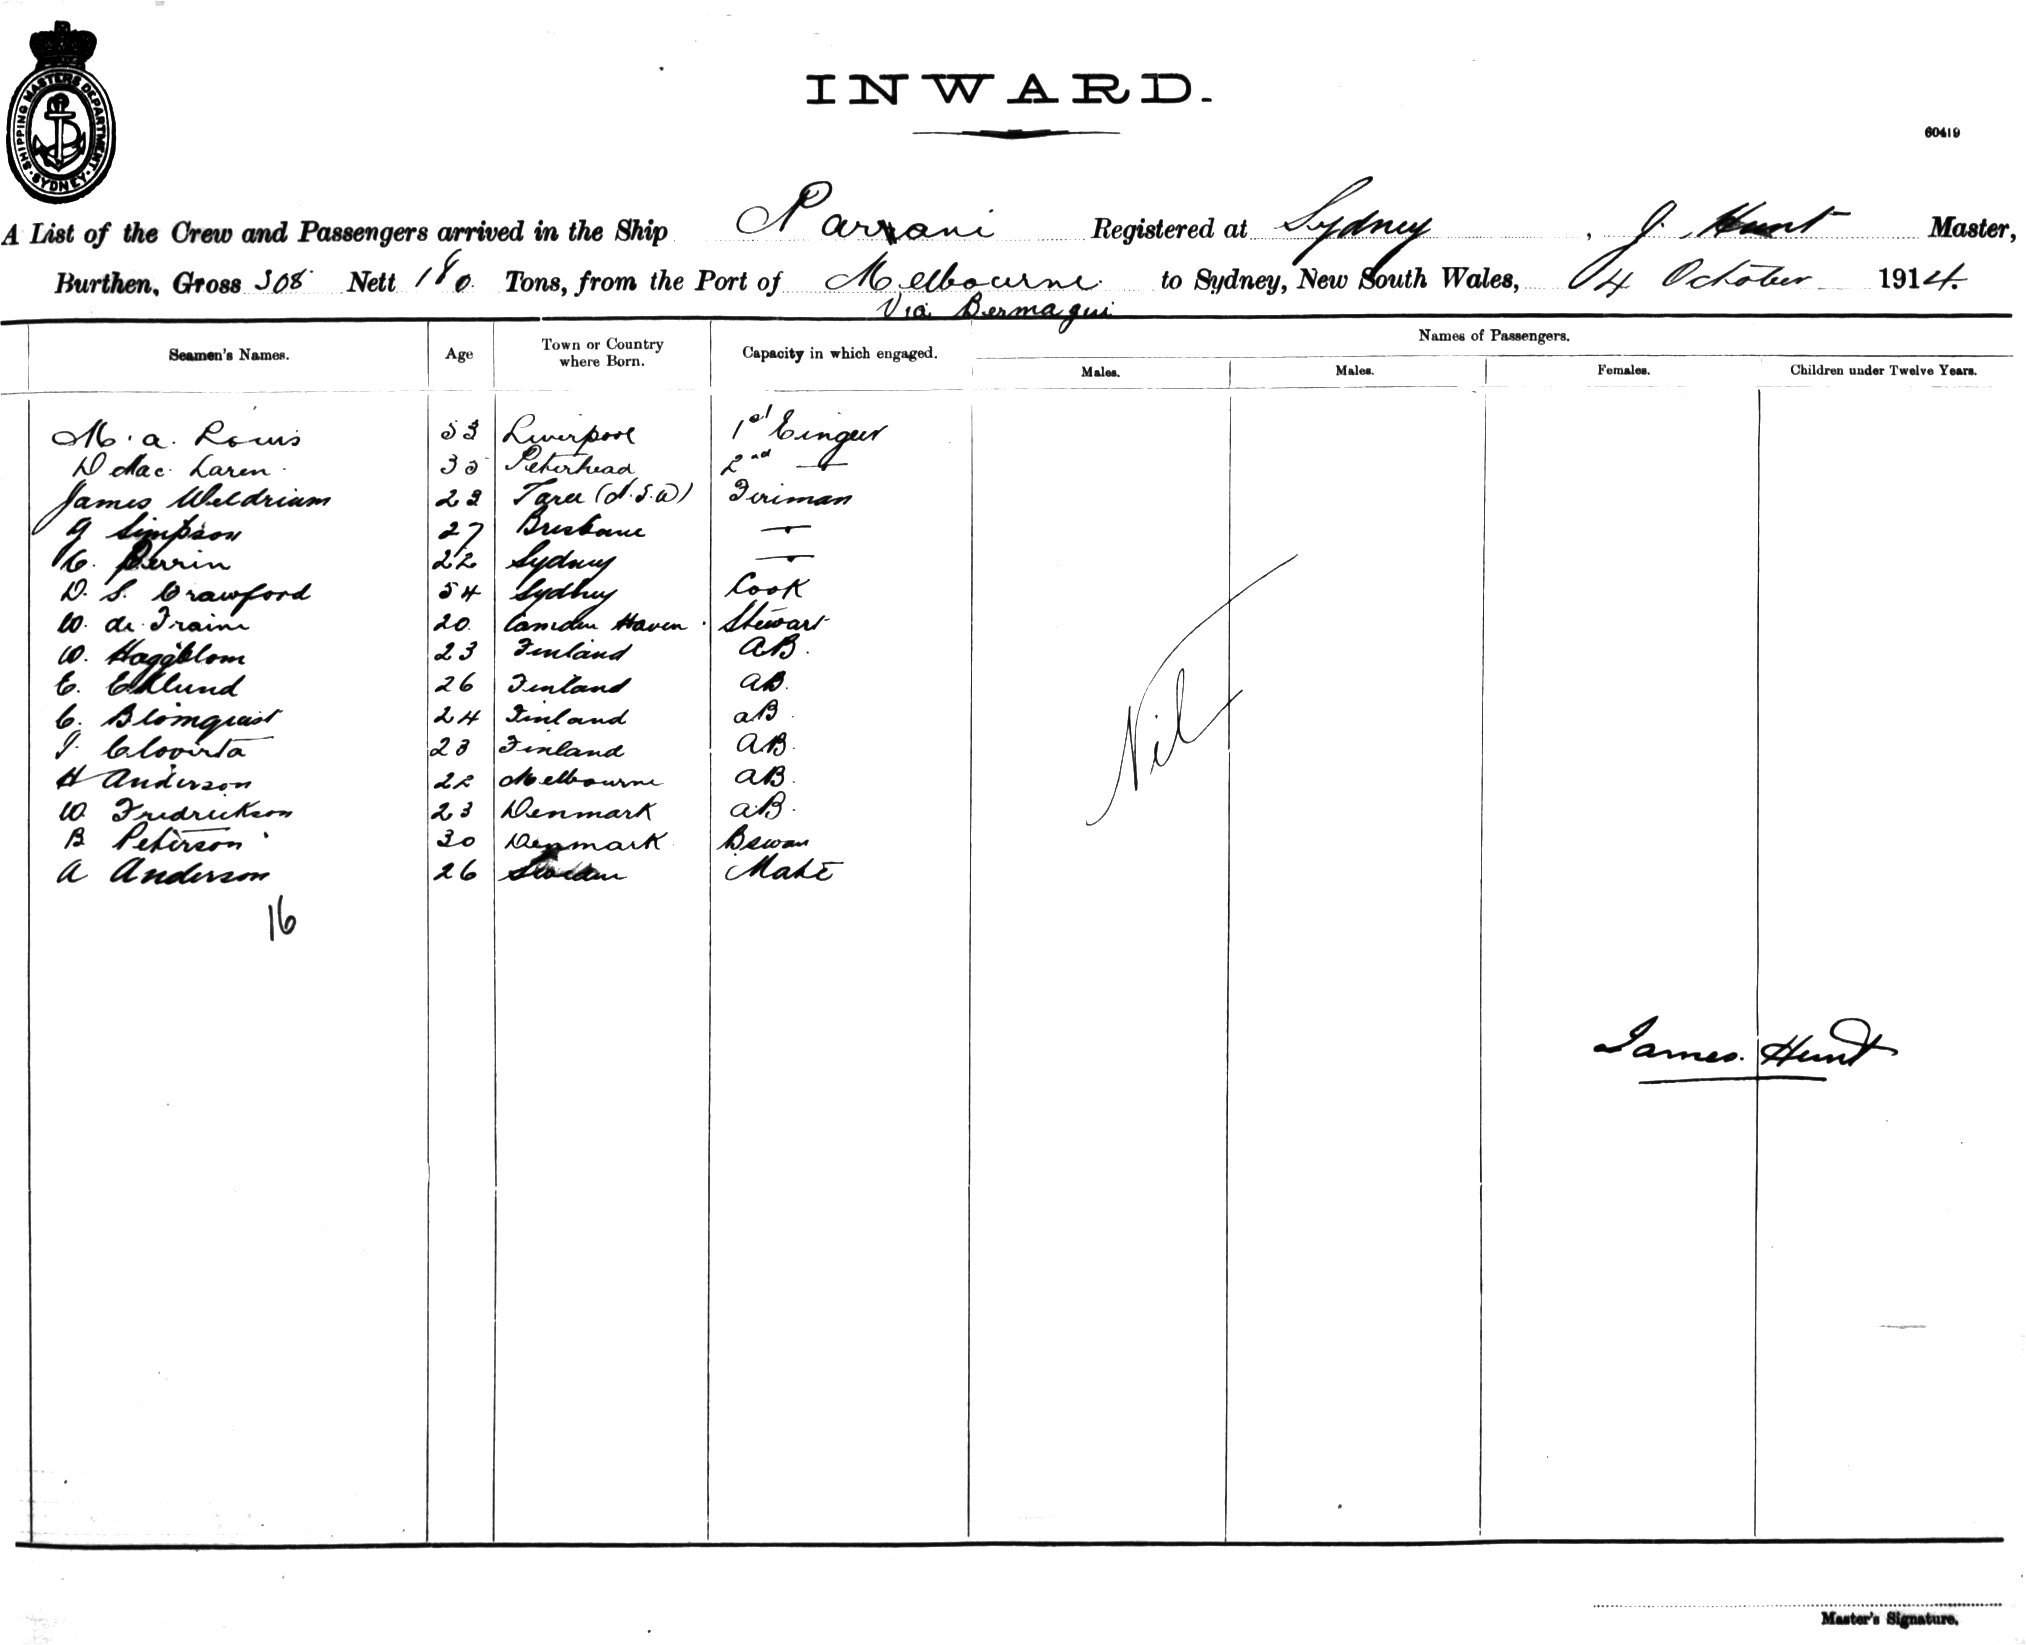 SHIPPING MASTERS DEPARTMENT SYDNEY
INWARD.
60419
A List of the Crew and Passengers arrived in the Ship Narrani Registered at Sydney, J. Hunt Master,
Burthen, Gross 308 Nett 180 Tons, from the Port of Melbourne to Sydney, New South Wales, 4 October 1914.
Via Bermagui
Names of Passengers.
Seamen's Names. Age Town or Country where Born. Capacity in which engaged. Males. Males. Females. Children under Twelve Years.
M. A. Louis 53 Liverpool 1st
D MacLaren 35 Peterhead 2nd —"—
James 23 Taree (N.S.W) Firiman
G Simpson 27 Brisbane —"—
C. Perrin 22 Sydney —"—
D. S. Crawford 54 Sydney Cook
W. de Fraine 20 Camden Haven Stewart
W. Haggblom 23 Finland AB.
E. Eklund 26 Finland AB.
C. Blomquist 24 Finland AB.
23 Finland AB.
H Anderson 22 Melbourne AB.
W. Fredrickson 23 Denmark AB.
B Peterson 30 Denmark Bswan
A Anderson 26 Mate
16
Nil
James Hunt
Master's Signature.